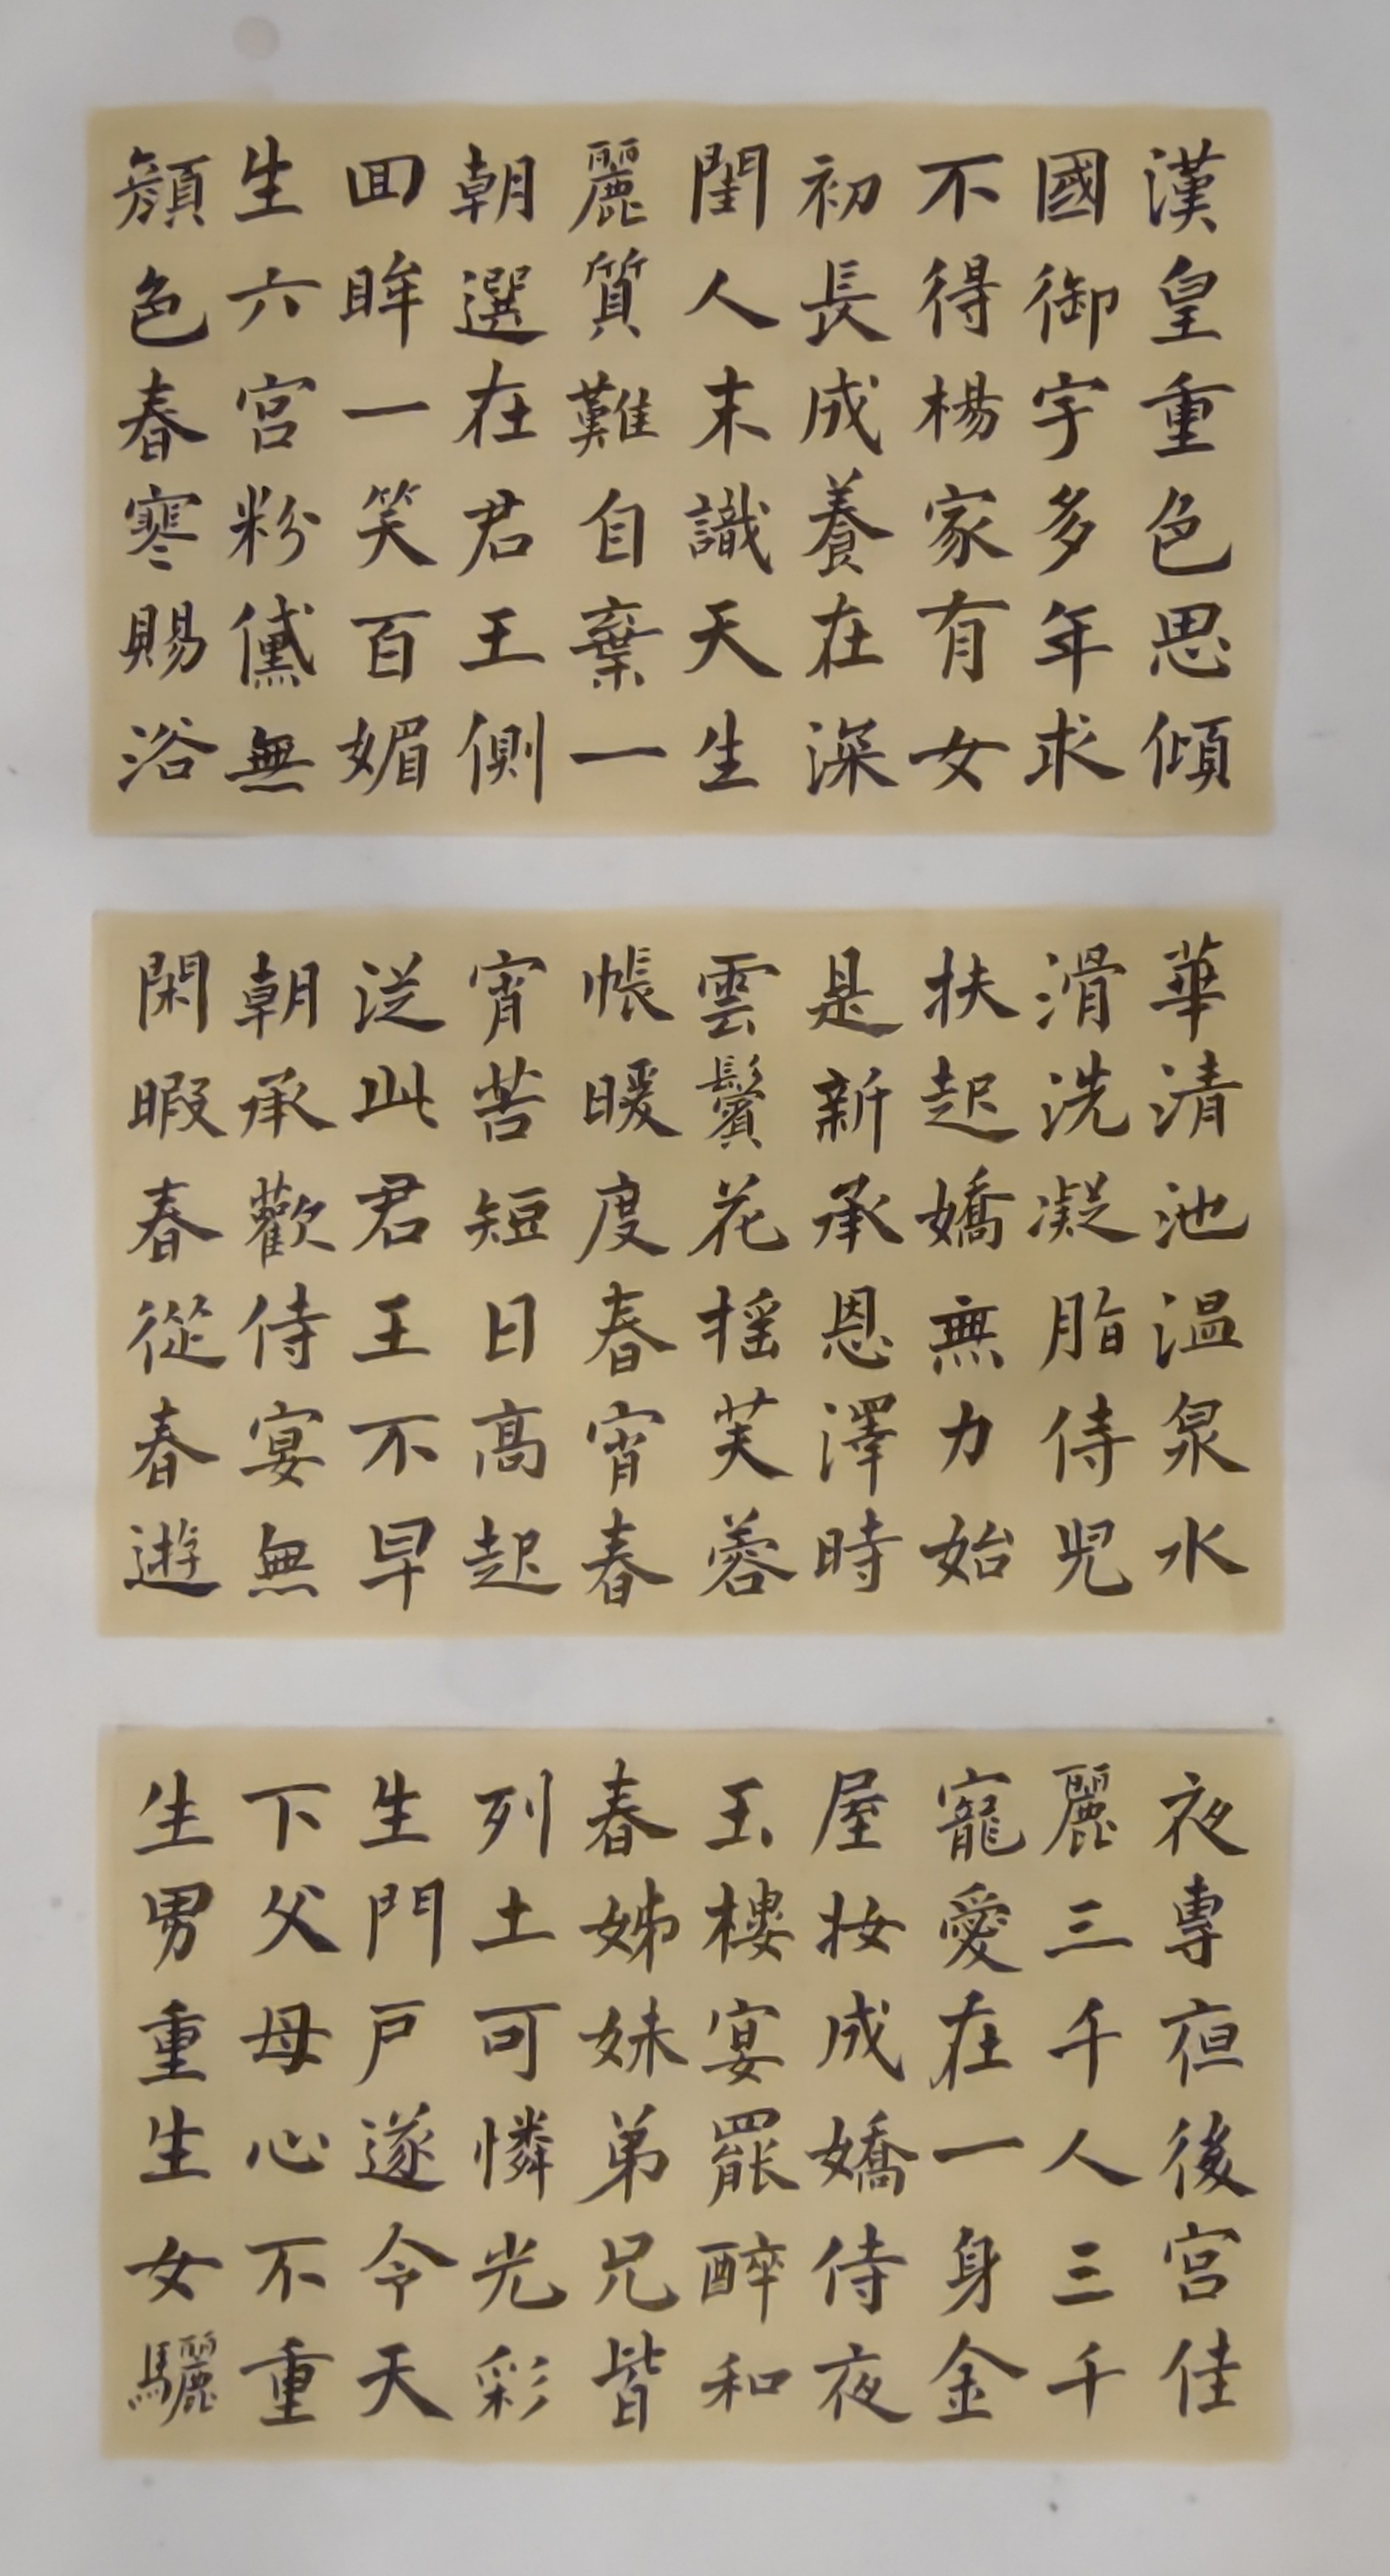 漢皇重色思傾
國御宇多年求
不得楊家有女
初長成養在深
閨人未識天生
麗質難自棄一
朝選在君王側
回眸一笑百媚
生六宮粉黛無
顏色春寒賜浴
華清池溫泉水
滑洗凝脂侍兒
扶起嬌無力始
是新承恩澤時
雲鬢花摇芙蓉
帳暖度春宵春
宵苦短日高起
從此君王不早
朝承歡侍宴無
閑暇春從春遊
夜專夜後宮佳
麗三千人三千
寵愛在一身金
屋妝成嬌侍夜
玉樓宴罷醉和
春姊妹弟兄皆
列土可憐光彩
生門戶遂令天
下父母心不重
生男重生女驪